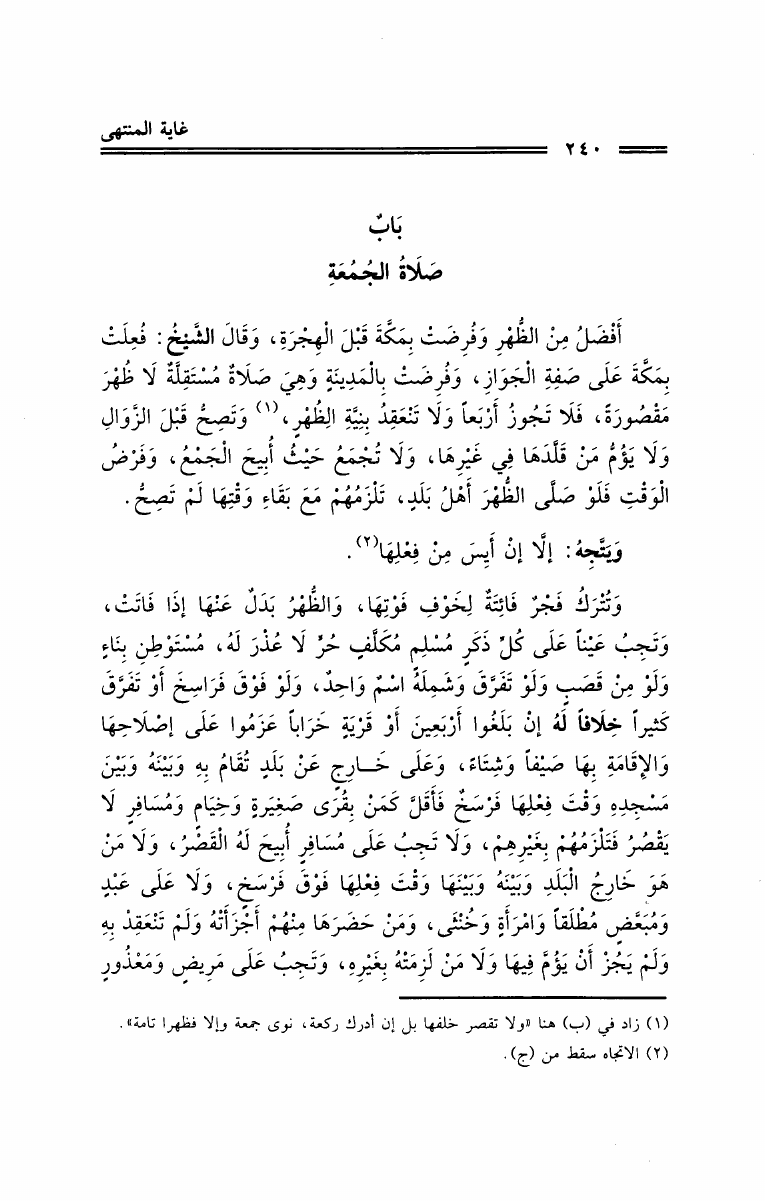 غاية المنتهى
٢٤٠
بَابُ
صَلَاةُ الجُمُعَةِ
أَفْضَلُ مِنْ الظُّهْرِ وَفُرِضَتْ بِمَكَّةَ قَبْلَ الْهِجْرَةِ، وَقَالَ الشَّيْخُ: فُعِلَتْ
بِمَكَّةَ عَلَى صَفِةِ الْجَوَازِ، وَفُرِضَتْ بِالْمَدِينَةِ وَهِيَ صَلَاةٌ مُسْتَقِلَّةٌ لَا ظُهْرَ
مَقْصُورَةً، فَلَا تَجُوزُ أَرْبَعاً وَلَا تَنْعَقِدُ بِنِيَّةِ الِظُهْرِ،(١) وَتَصِحُّ قَبْلَ الزَّوَالِ
وَلَا يَؤُمُّ مَنْ قَلَّدَهَا فِي غَيْرِهَا، وَلَا تُجْمَعُ حَيْثُ أُبِيحَ الْجَمْعُ، وَفَرْضُ
الْوَقْتِ فَلَوْ صَلَّى الظُّهْرَ أَهْلُ بَلَدٍ، تَلْزَمُهُمْ مَعَ بَقَاءِ وَقْتِهَا لَمْ تَصِحُّ.
وَيَتَّجِهُ: إلَّا إنْ أَيِسَ مِنْ فِعْلِهَا(٢).
وَتُتْرَكُ فَجْرٌ فَائِتَةٌ لِخَوْفِ فَوْتِهَا، وَالظُّهْرُ بَدَلٌ عَنْهَا إذَا فَاتَتْ،
وَتَجِبُ عَيْناً عَلَى كُلِّ ذَكَرٍ مُسْلِمٍ مُكَلَّفٍ حُرٍّ لَا عُذْرَ لَهُ، مُسْتَوْطِنٍ بِنَاءٍ
وَلَوْ مِنْ قَصَبٍ وَلَوْ تَفَرَّقَ وَشَمِلَهُ اسْمٌ وَاحِدٌ، وَلَوْ فَوْقَ فَرَاسِخَ أَوْ تَفَرَّقَ
كَثيراً خِلَافاً لَهُ إنْ بَلَغُوا أَرْبَعِينَ أَوْ قَرْيَةٍ خَرَاباً عَزَمُوا عَلَى إصْلَاحِهَا
وَالإِقَامَةِ بِهَا صَيْفاً وَشِتَاءً، وَعَلَى خَــارِجٍ عَنْ بَلَدٍ تُقَامُ بِهِ وَبَيْنَهُ وَبَيْنَ
مَسْجِدِهِ وَقْتَ فِعْلِهَا فَرْسَخٌ فَأَقَلَّ كَمَنْ بِقُرًى صَغِيرَةٍ وَخِيَامٍ وَمُسَافِرٍ لَا
يَقْصُرُ فَتَلْزَمُهُمْ بِغَيْرِهِمْ، وَلَا تَجِبُ عَلَى مُسَافِرٍ أُبِيحَ لَهُ الْقَصْرُ، وَلَا مَنْ
هَوَ خَارِجُ الْبَلَدِ وَبَيْنَهُ وَبَيْنَهَا وَقْتَ فِعْلِهَا فَوْقَ فَرْسَخٍ، وَلَا عَلَى عَبْدٍ
وَمُبَعَّضٍ مُطْلَقاً وَامْرَأَةٍ وَخُنْثَى، وَمَنْ حَضَرَهَا مِنْهُمْ أَجْزَأَتْهُ وَلَمْ تَنْعَقِدْ بِهِ
وَلَمْ يَجُزْ أَنْ يَؤُمَّ فِيهَا وَلَا مَنْ لَزِمَتْهُ بِغَيْرِهِ، وَتَجِبُ عَلَى مَرِيضٍ وَمَعْذُورٍ
(١) زاد في (ب) هنا «ولا تقصر خلفها بل إن أدرك ركعة، نوى جمعة وإلا فظهرا تامة».
(٢) الاتجاه سقط من (ج).